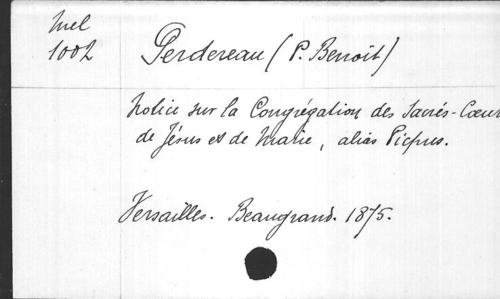 Mel
1002
Perdereau (P. Benoît)
Notice sur la Congrégation des Sacrés-Cœurs
de Jésus et de Marie, alias Picpus.
Versailles. Beaugrand. 1875.